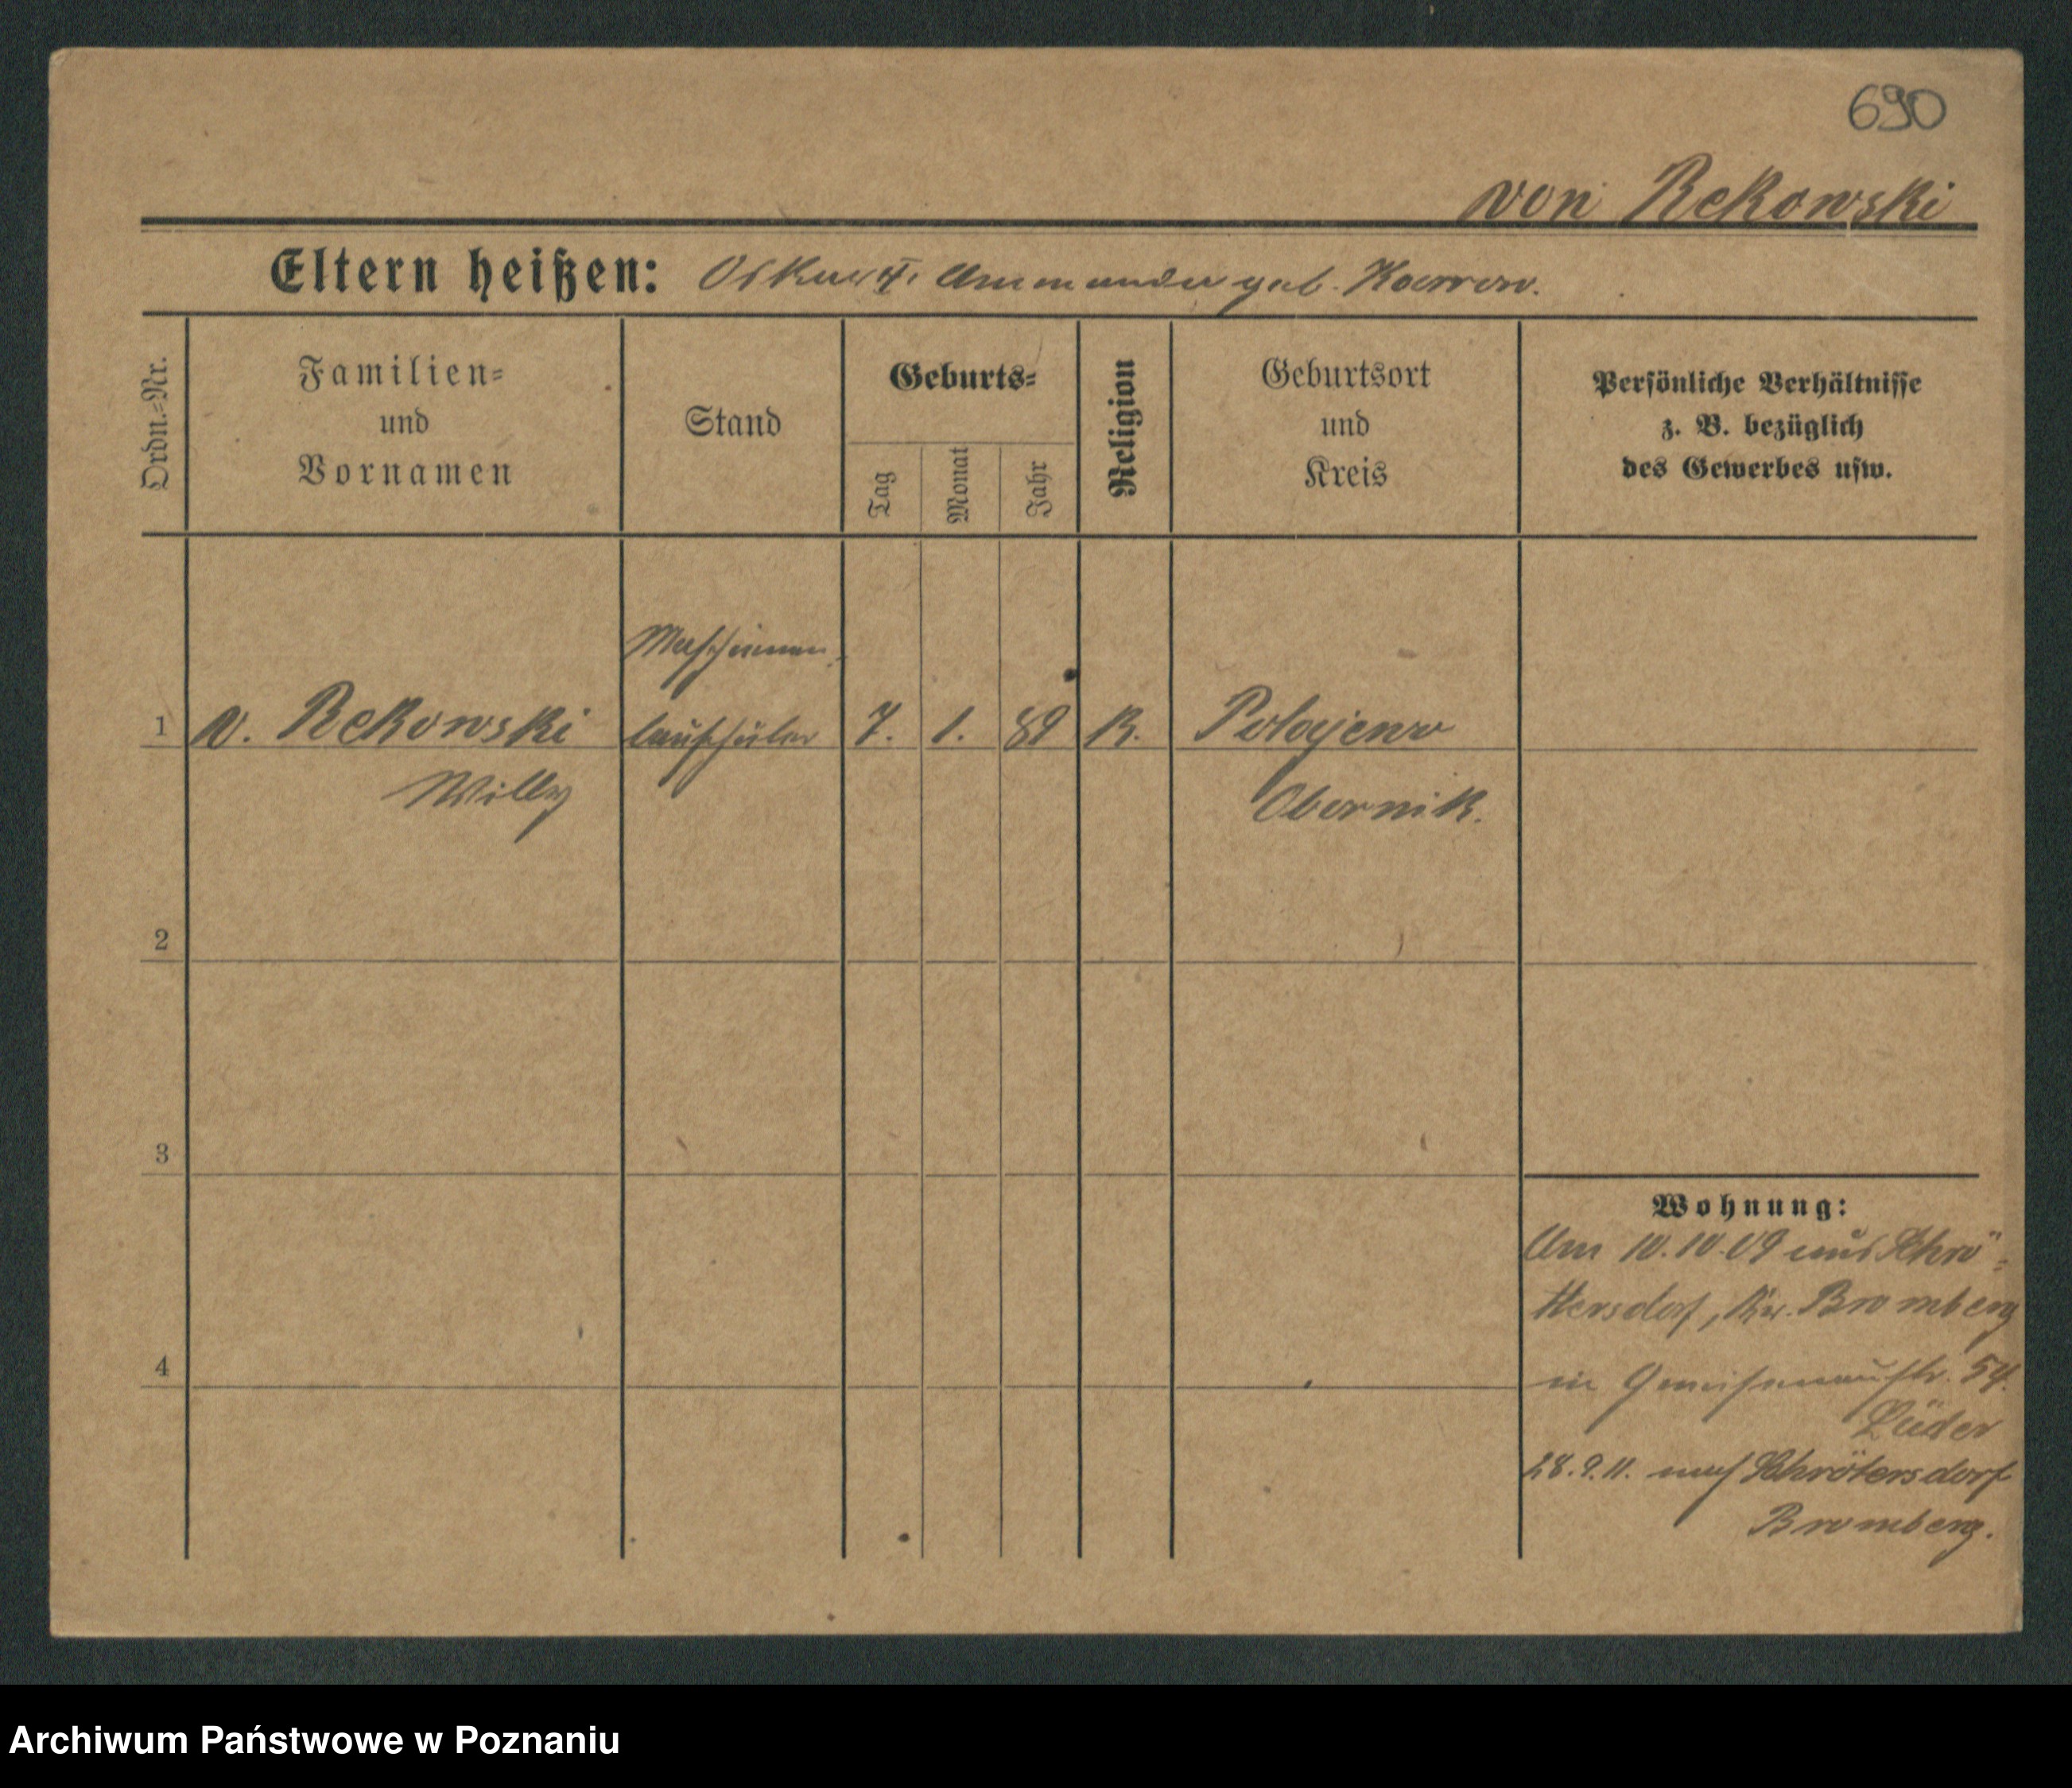 690
von Rekowski
Eltern heißen: Oskar u. geb.
Ordn.=Nr.
Familien=
und
Vornamen
Stand
Geburts=
Tag
Monat
Jahr
Religion
Geburtsort
und
Kreis
Persönliche Verhältnisse
z. B. bezüglich
des Gewerbes usw.
Maschinen
1 v. Rekowski bauschüler 7. 1. 89 K. Polajewo
Willy Obornik.
2
3
Wohnung:
Am 10.10.09 aus Schrö=
ttersdorf, Kr. Bromberg
4
in Gneisenaustr. 54.
Lüder
28.9.11. nach Schröttersdorf
Bromberg.
Archiwum Państwowe w Poznaniu